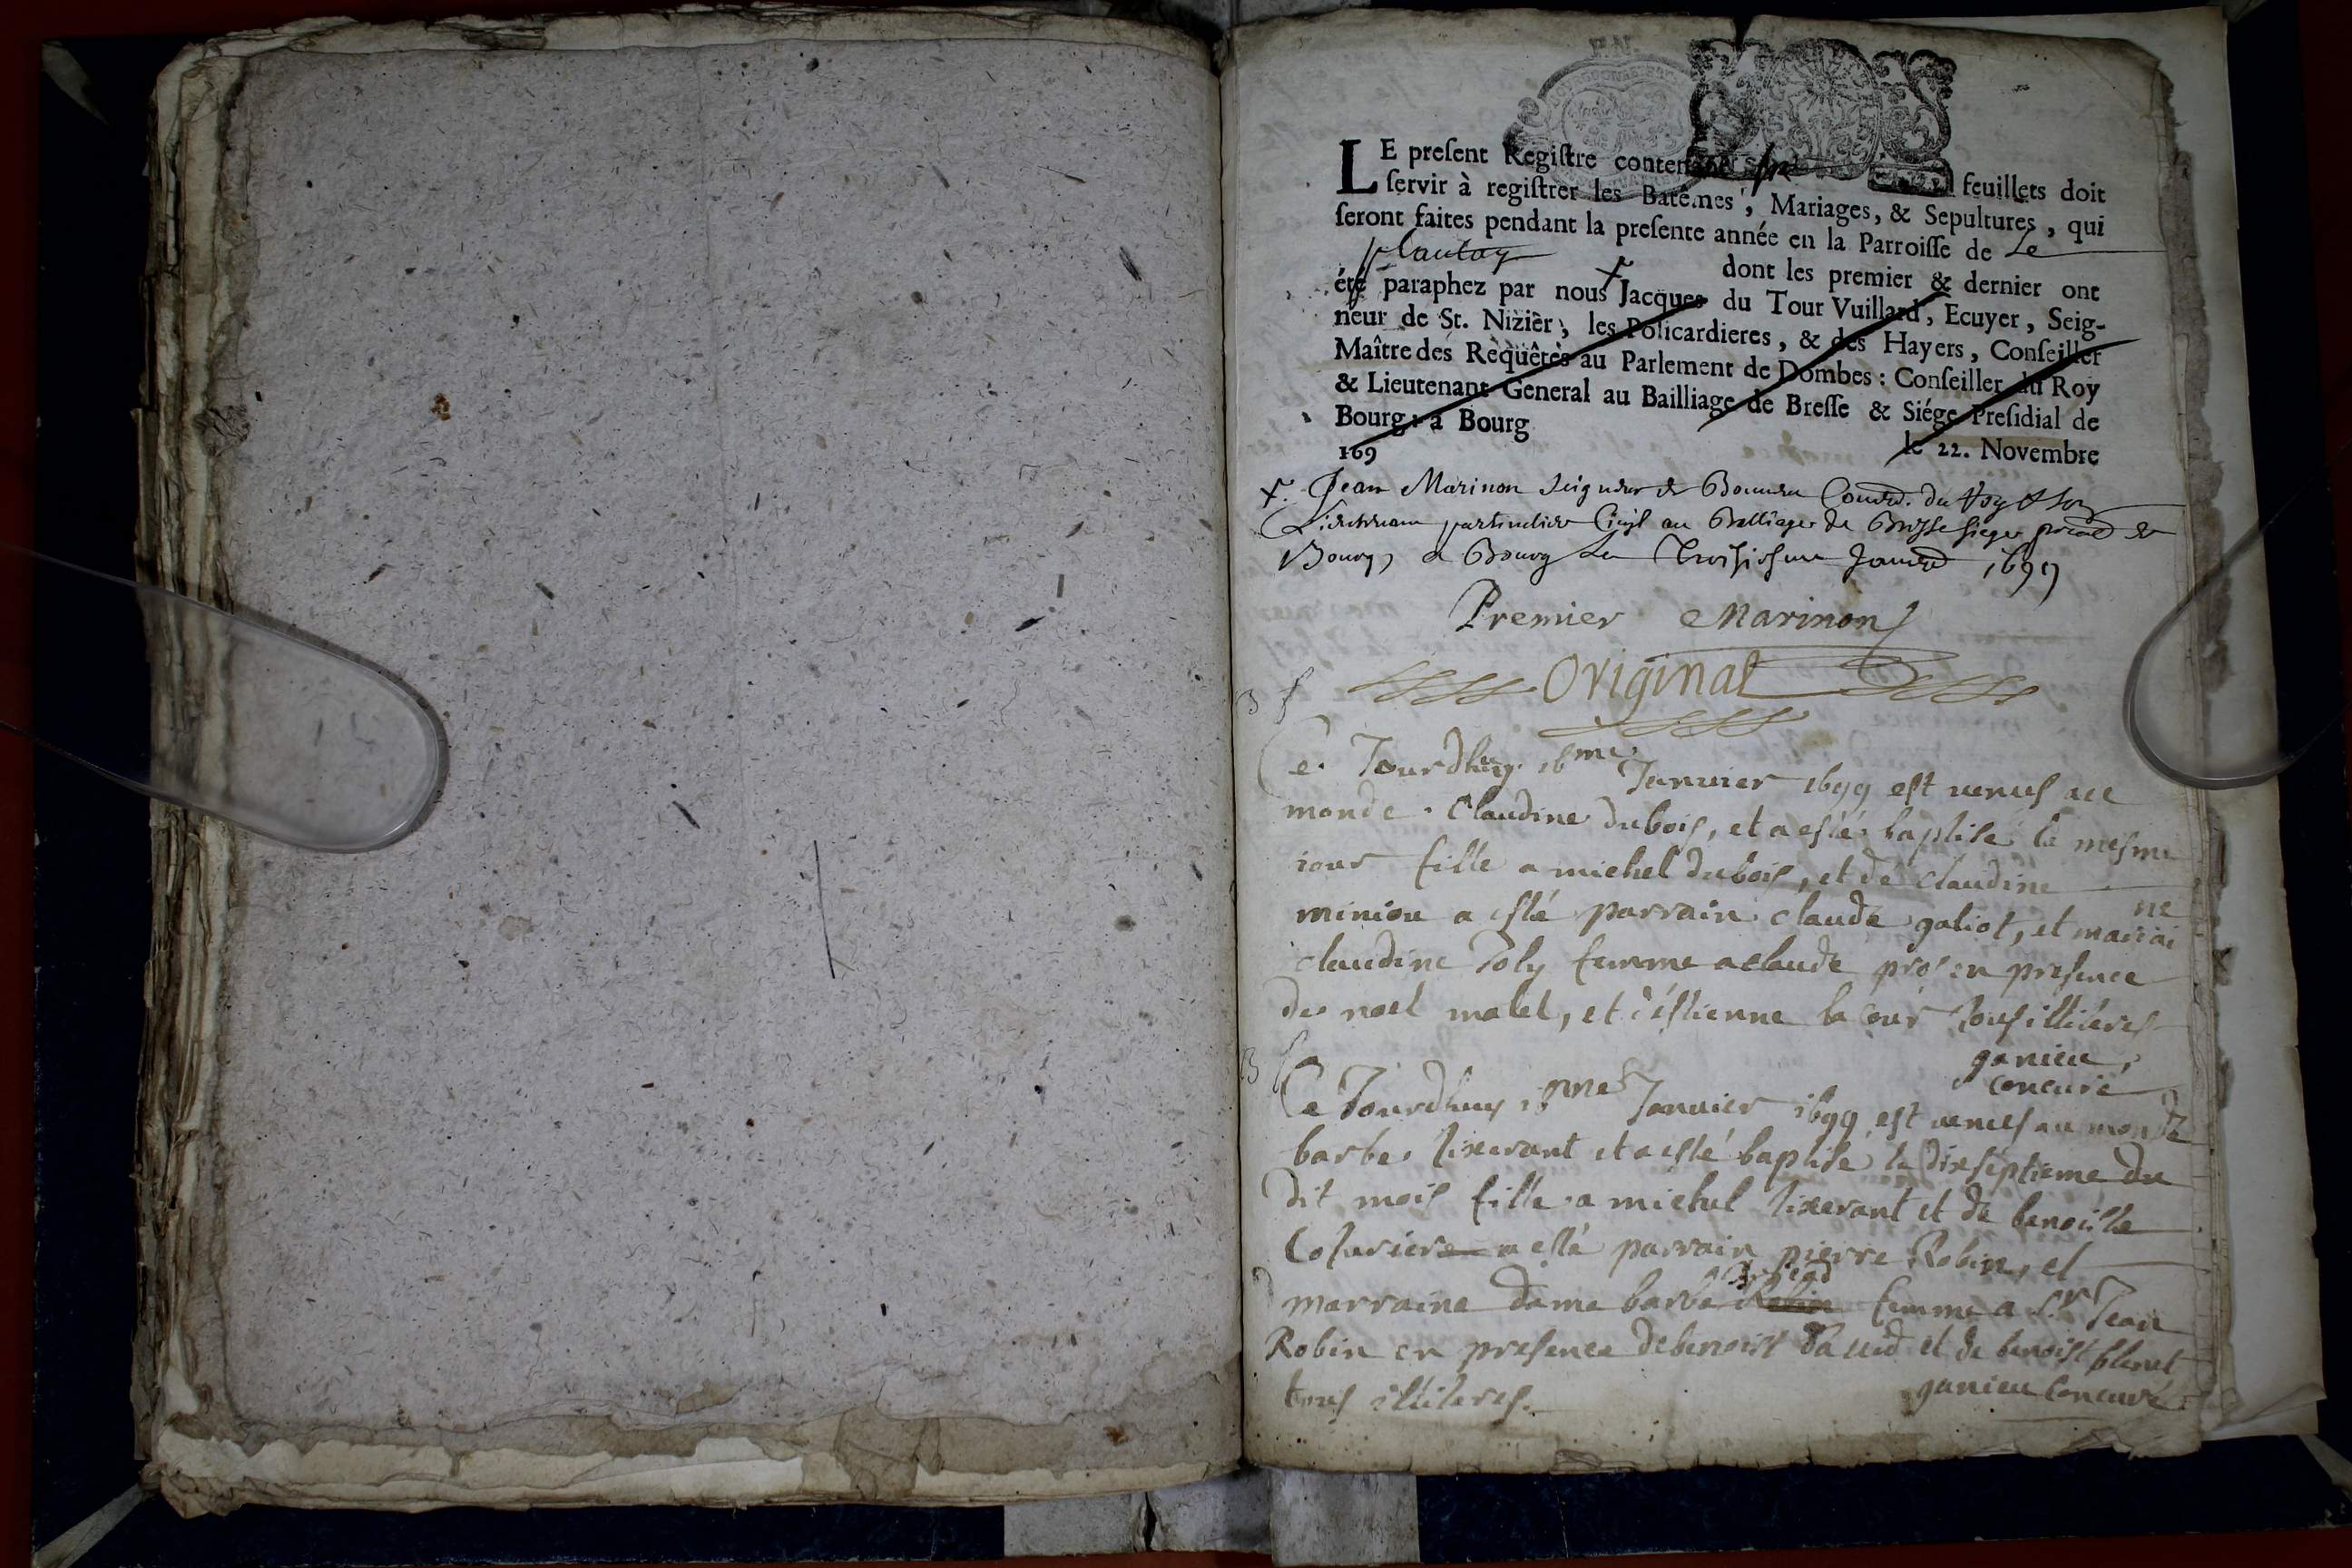 LE present Registre contenant six feuillets doit
servir à registrer les Batêmes, Mariages, & Sepultures, qui
seront faites pendant la presente année en la Parroisse de Le
plantay dont les premier & dernier ont
été paraphez par nous Jacques du Tour Vuillard, Ecuyer, Seig-
neur de St. Nizier, les Policardieres, & des Hayers, Conseiller
Maître des Requêtes au Parlement de Dombes: Conseiller du Roy
& Lieutenant General au Bailliage de Bresse & Siége Presidial de
Bourg: à Bourg le 22. Novembre
169
Jean Marinon seigneur de du Roy & son
Lieutenant particulier Civil au Balliage de Bresse siege de
Bourg, a Bourg Le Troisiesme 1699
Premier Marinon
Original
B
Ce Jourdhuy 16me Janvier 1699 est venus au
monde Claudine dubois, et a esté baptisé le mesme
iour fille a michel dubois, et de claudine
minion a esté parrain claude galiot, et marrai ne
claudine Poly femme a claude pros en presence
de noel malet, et d'estienne la Cour Tous illiteres
ganieu
concuré
B
Ce Jourdhuy Janvier 1699 est venus au monde
barbe lixerant et a esté baptise le dixseptieme du
dit mois fille a michel lixerant et de benoiste
a esté parrain pierre Robin, et
marraine dame barbe Robin femme a Sr Jean
Robin en presence de benoist David et de benoist
tous illiteres. ganieu Concuré